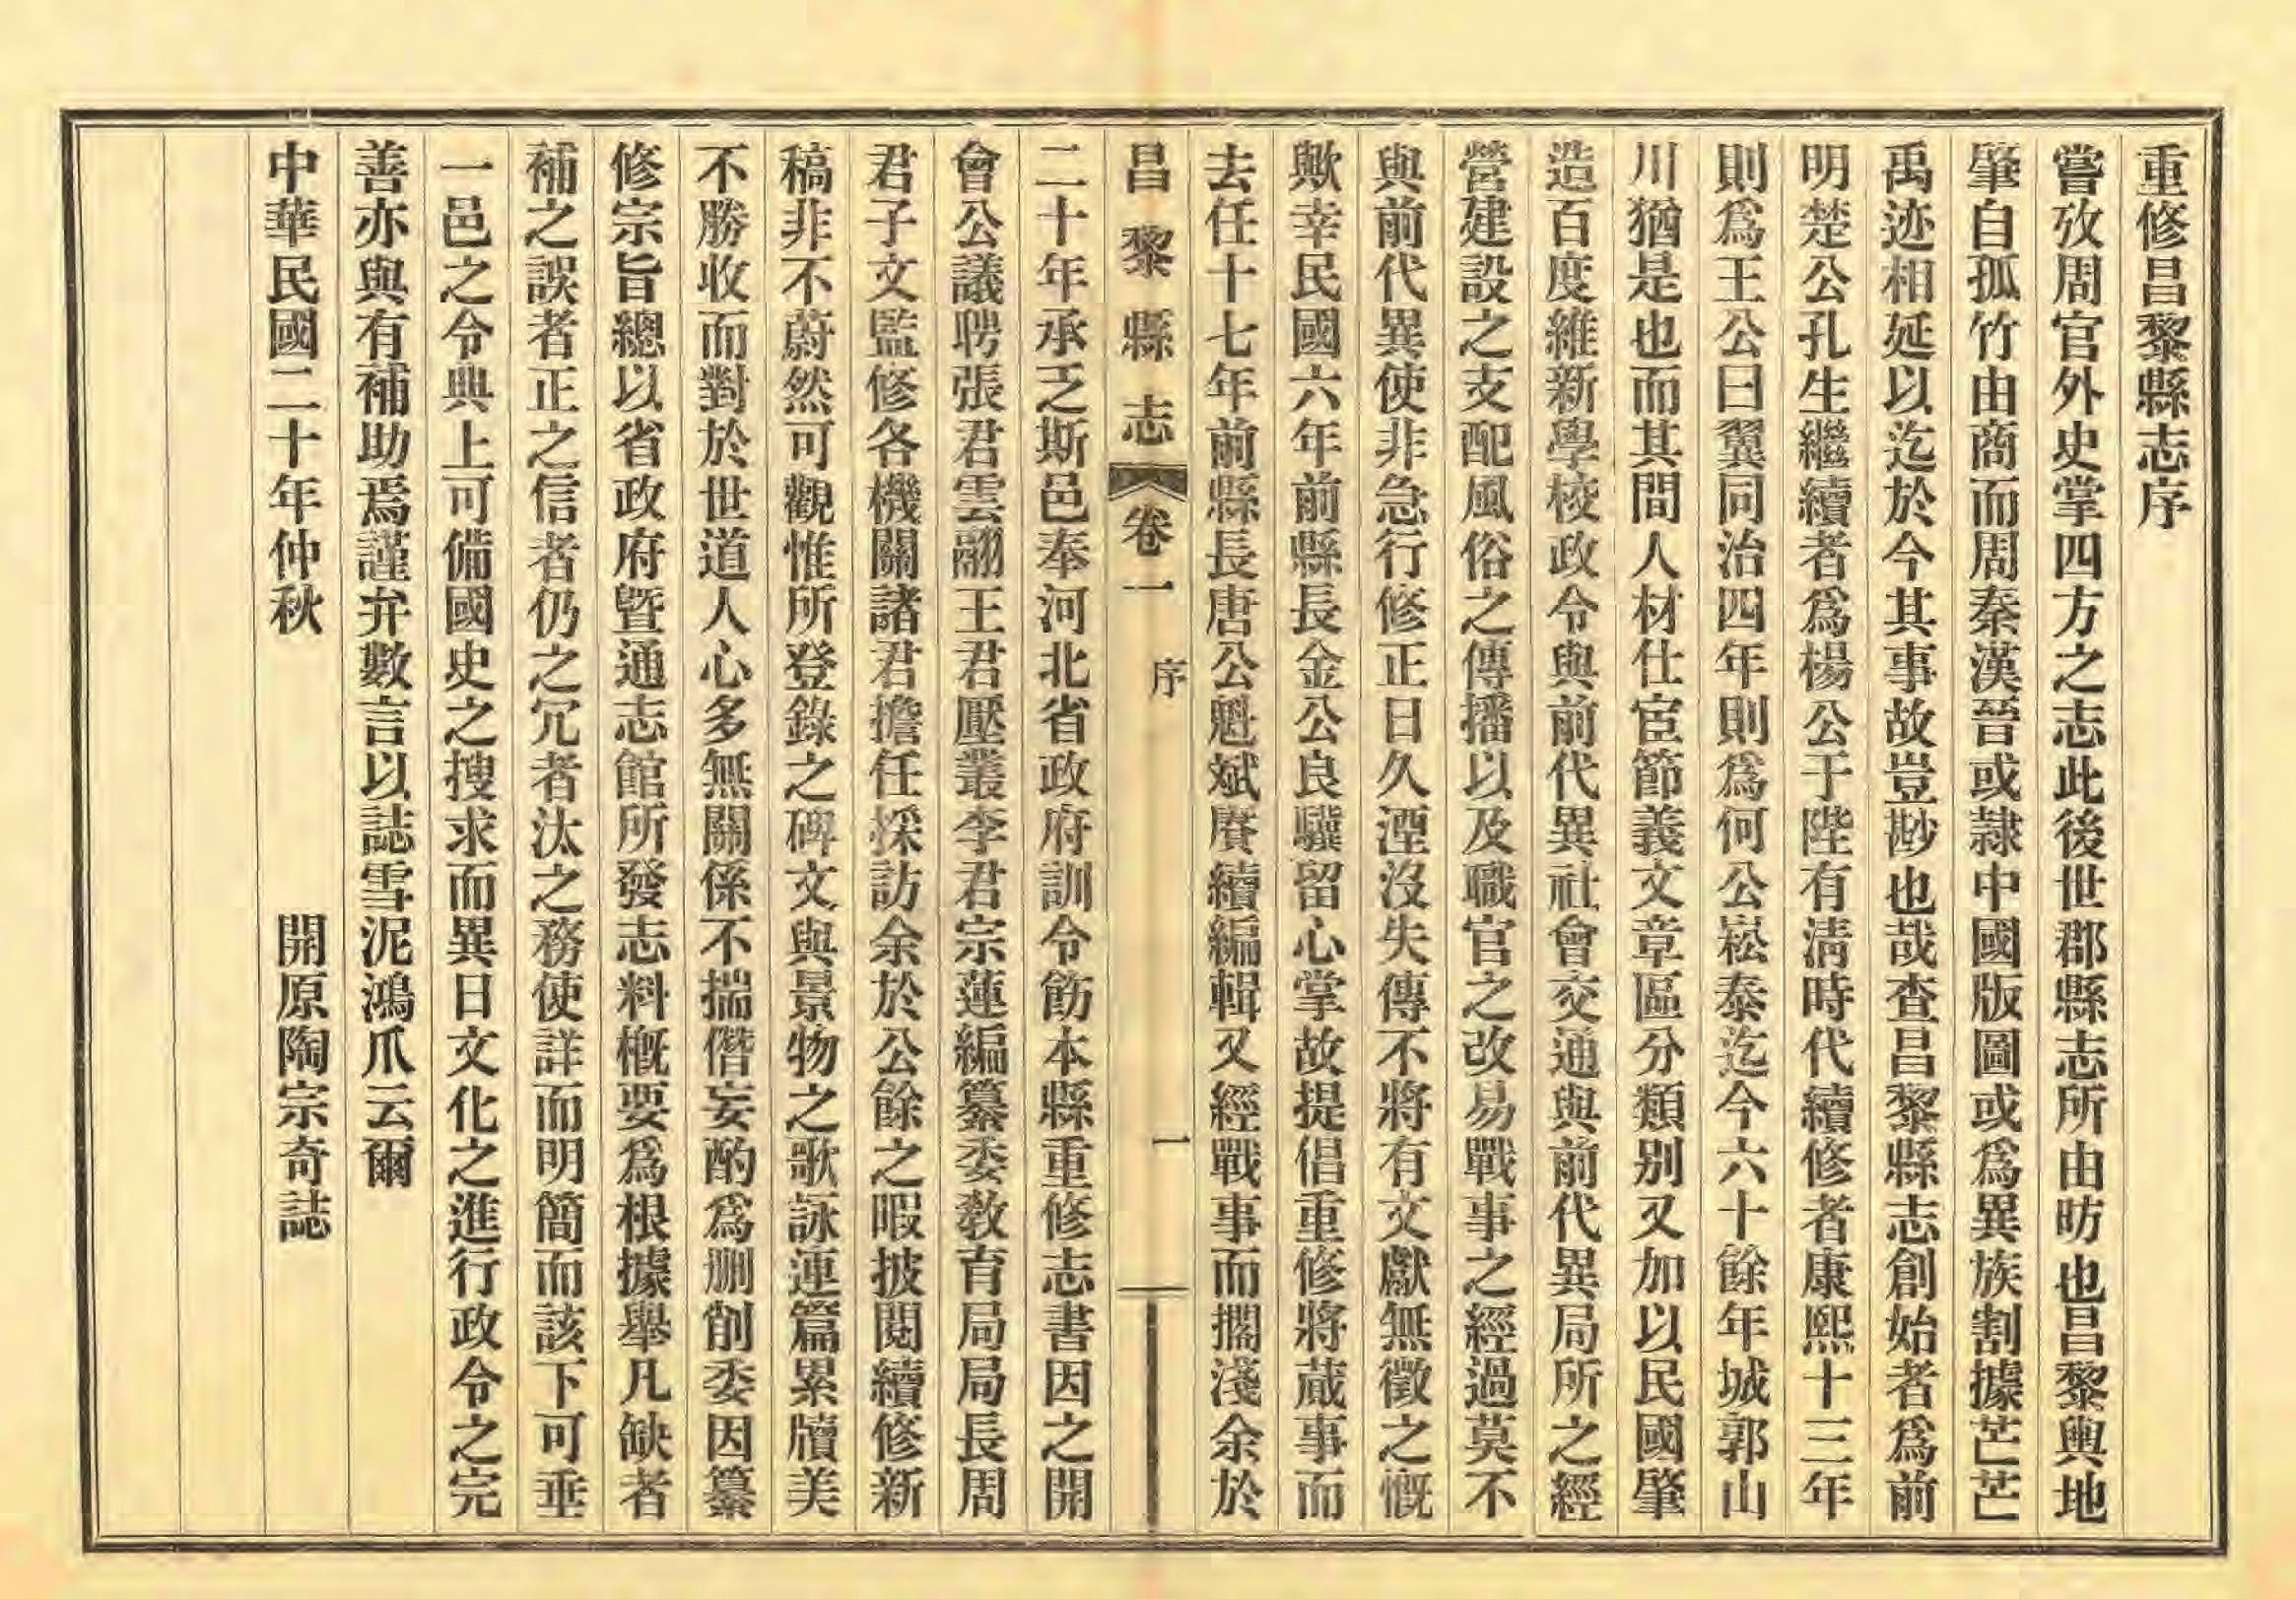 重修昌黎縣志序
嘗攷周官外史掌四方之志此後世郡縣志所由昉也昌黎輿地
肇自孤竹由商而周秦漢晉或隷中國版圖或爲異族割據芒芒
禹迹相延以迄於今其事故豈尠也哉查昌黎縣志創始者爲前
明楚公孔生繼續者爲楊公于陛有淸時代續修者康熙十三年
則爲王公曰翼同治四年則爲何公崧泰迄今六十餘年城郭山
川猶是也而其間人材仕宦節義文章區分類别又加以民國肇
造百度維新學校政令與前代異社會交通與前代異局所之經
營建設之支配風俗之傳播以及職官之改易戰事之經過莫不
與前代異使非急行修正日久湮沒失傳不將有文獻無徵之慨
歟幸民國六年前縣長金公良驥留心掌故提倡重修將蕆事而
去任十七年前縣長唐公魁斌賡續編輯又經戰事而擱淺余於
昌黎縣志 卷一 序 一
二十年承乏斯邑奉河北省政府訓令飭本縣重修志書因之開
會公議聘張君雲翮王君壓叢李君宗蓮編纂委敎育局局長周
君子文監修各機關諸君擔任採訪余於公餘之暇披閱續修新
稿非不蔚然可觀惟所登錄之碑文與景物之歌詠連篇累牘美
不勝收而對於世道人心多無關係不揣僭妄酌爲刪削委因纂
修宗旨總以省政府曁通志館所發志料槪要爲根據舉凡缺者
補之誤者正之信者仍之冗者汰之務使詳而明簡而該下可垂
一邑之令典上可備國史之搜求而異日文化之進行政令之完
善亦與有補助焉謹弁數言以誌雪泥鴻爪云爾
中華民國二十年仲秋 開原陶宗奇誌